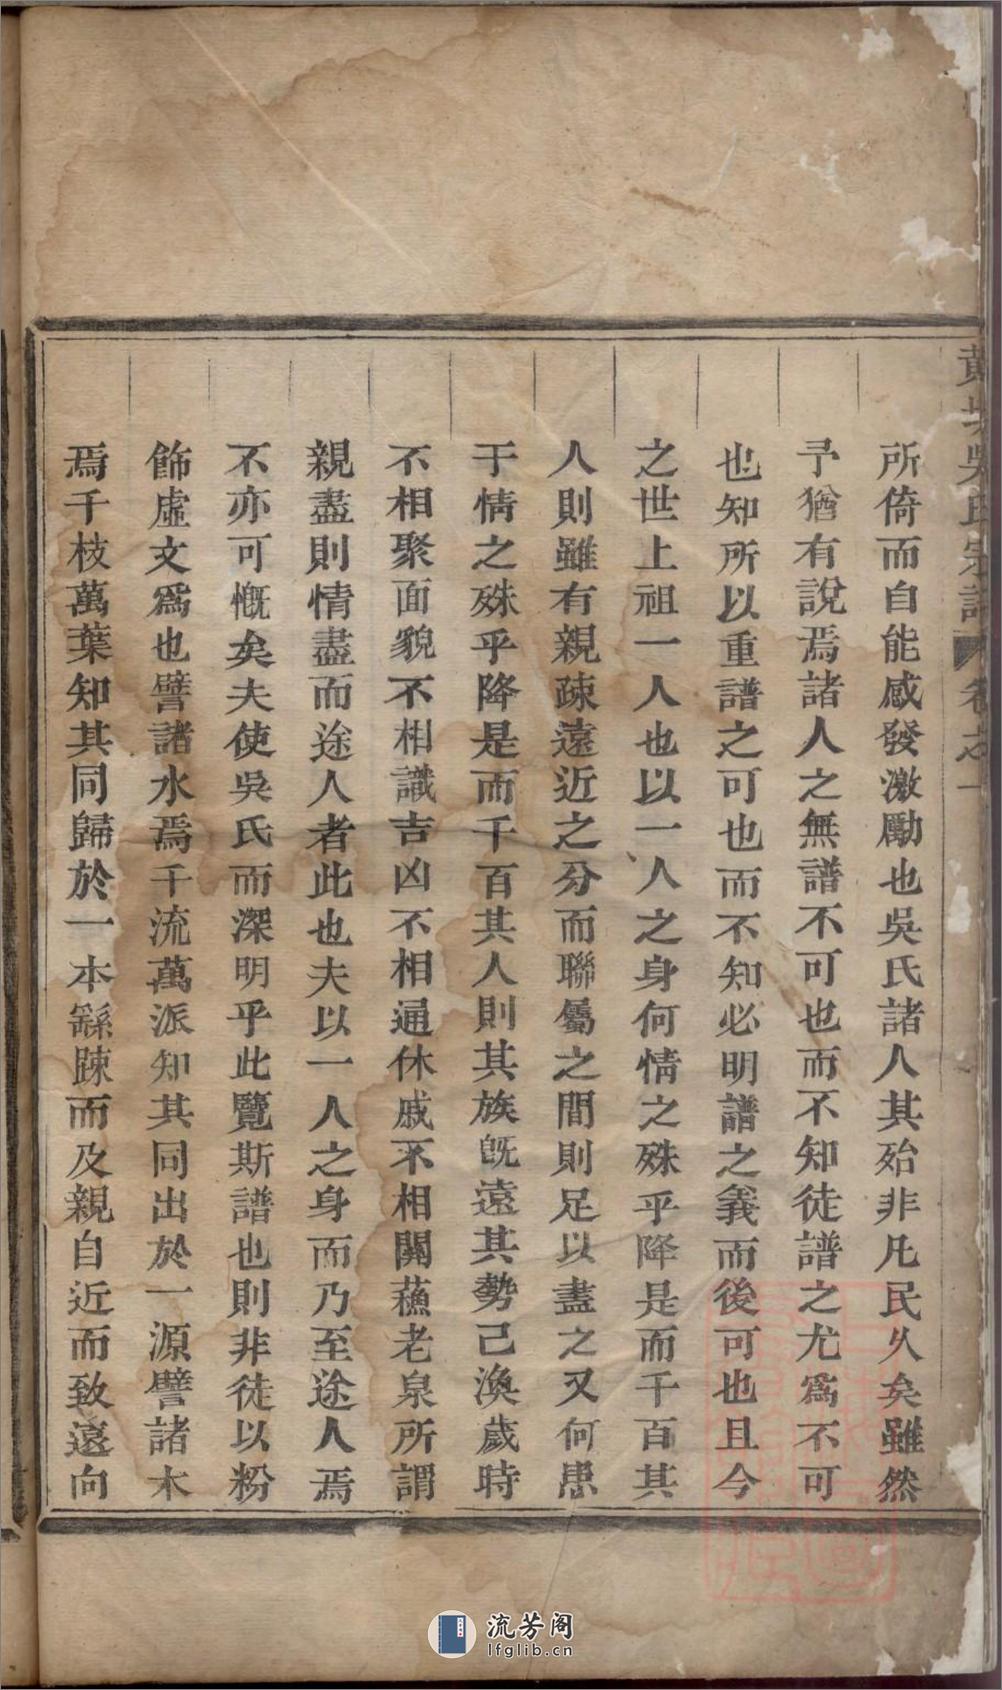 所倚而自能感發激勵也吳氏諸人其殆非凡民久矣雖然
予猶有說焉諸人之無譜不可也而不知徒譜之尤爲不可
也知所以重譜之可也而不知必明譜之義而後可也且今
之世上祖一人也以一人之身何情之殊乎降是而千百其
人則雖有親疎遠近之分而聯屬之間則足以盡之又何患
于情之殊乎降是而千百其人則其族既遠其勢已渙歲時
不相聚面貌不相識吉凶不相通休戚不相關蘓老泉所謂
親盡則情盡而途人者此也夫以一人之身而乃至途人焉
不亦可慨矣夫使吳氏而深明乎此覽斯譜也則非徒以粉
飾虛文爲也譬諸水焉千流萬派知其同出於一源譬諸木
焉千枝萬葉知其同歸於一本繇踈而及親自近而致遠向
吳氏宗譜 卷之一
流芳阁
lfglib.cn